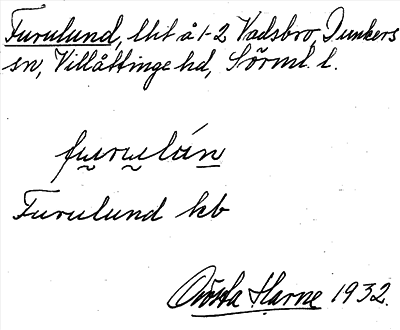 Furulund, lht å 1-2 Vadsbro, Dunkers
sn, Villåttinge hd, Sörml. l.
furulán
Furulund kb
Gösta Harne 1932.